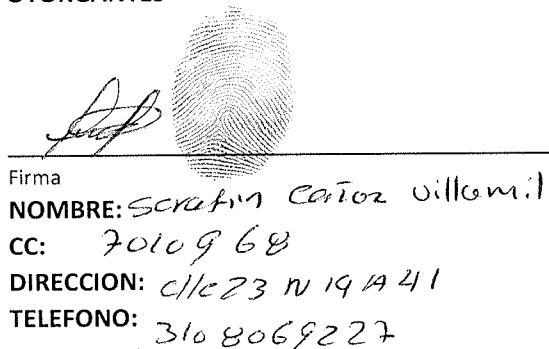 OTORGANTES
Firma
NOMBRE: Serafin Cañoz Villamil
CC: 7010968
DIRECCION: Clle 23 N 19 A 41
TELEFONO: 3108069227